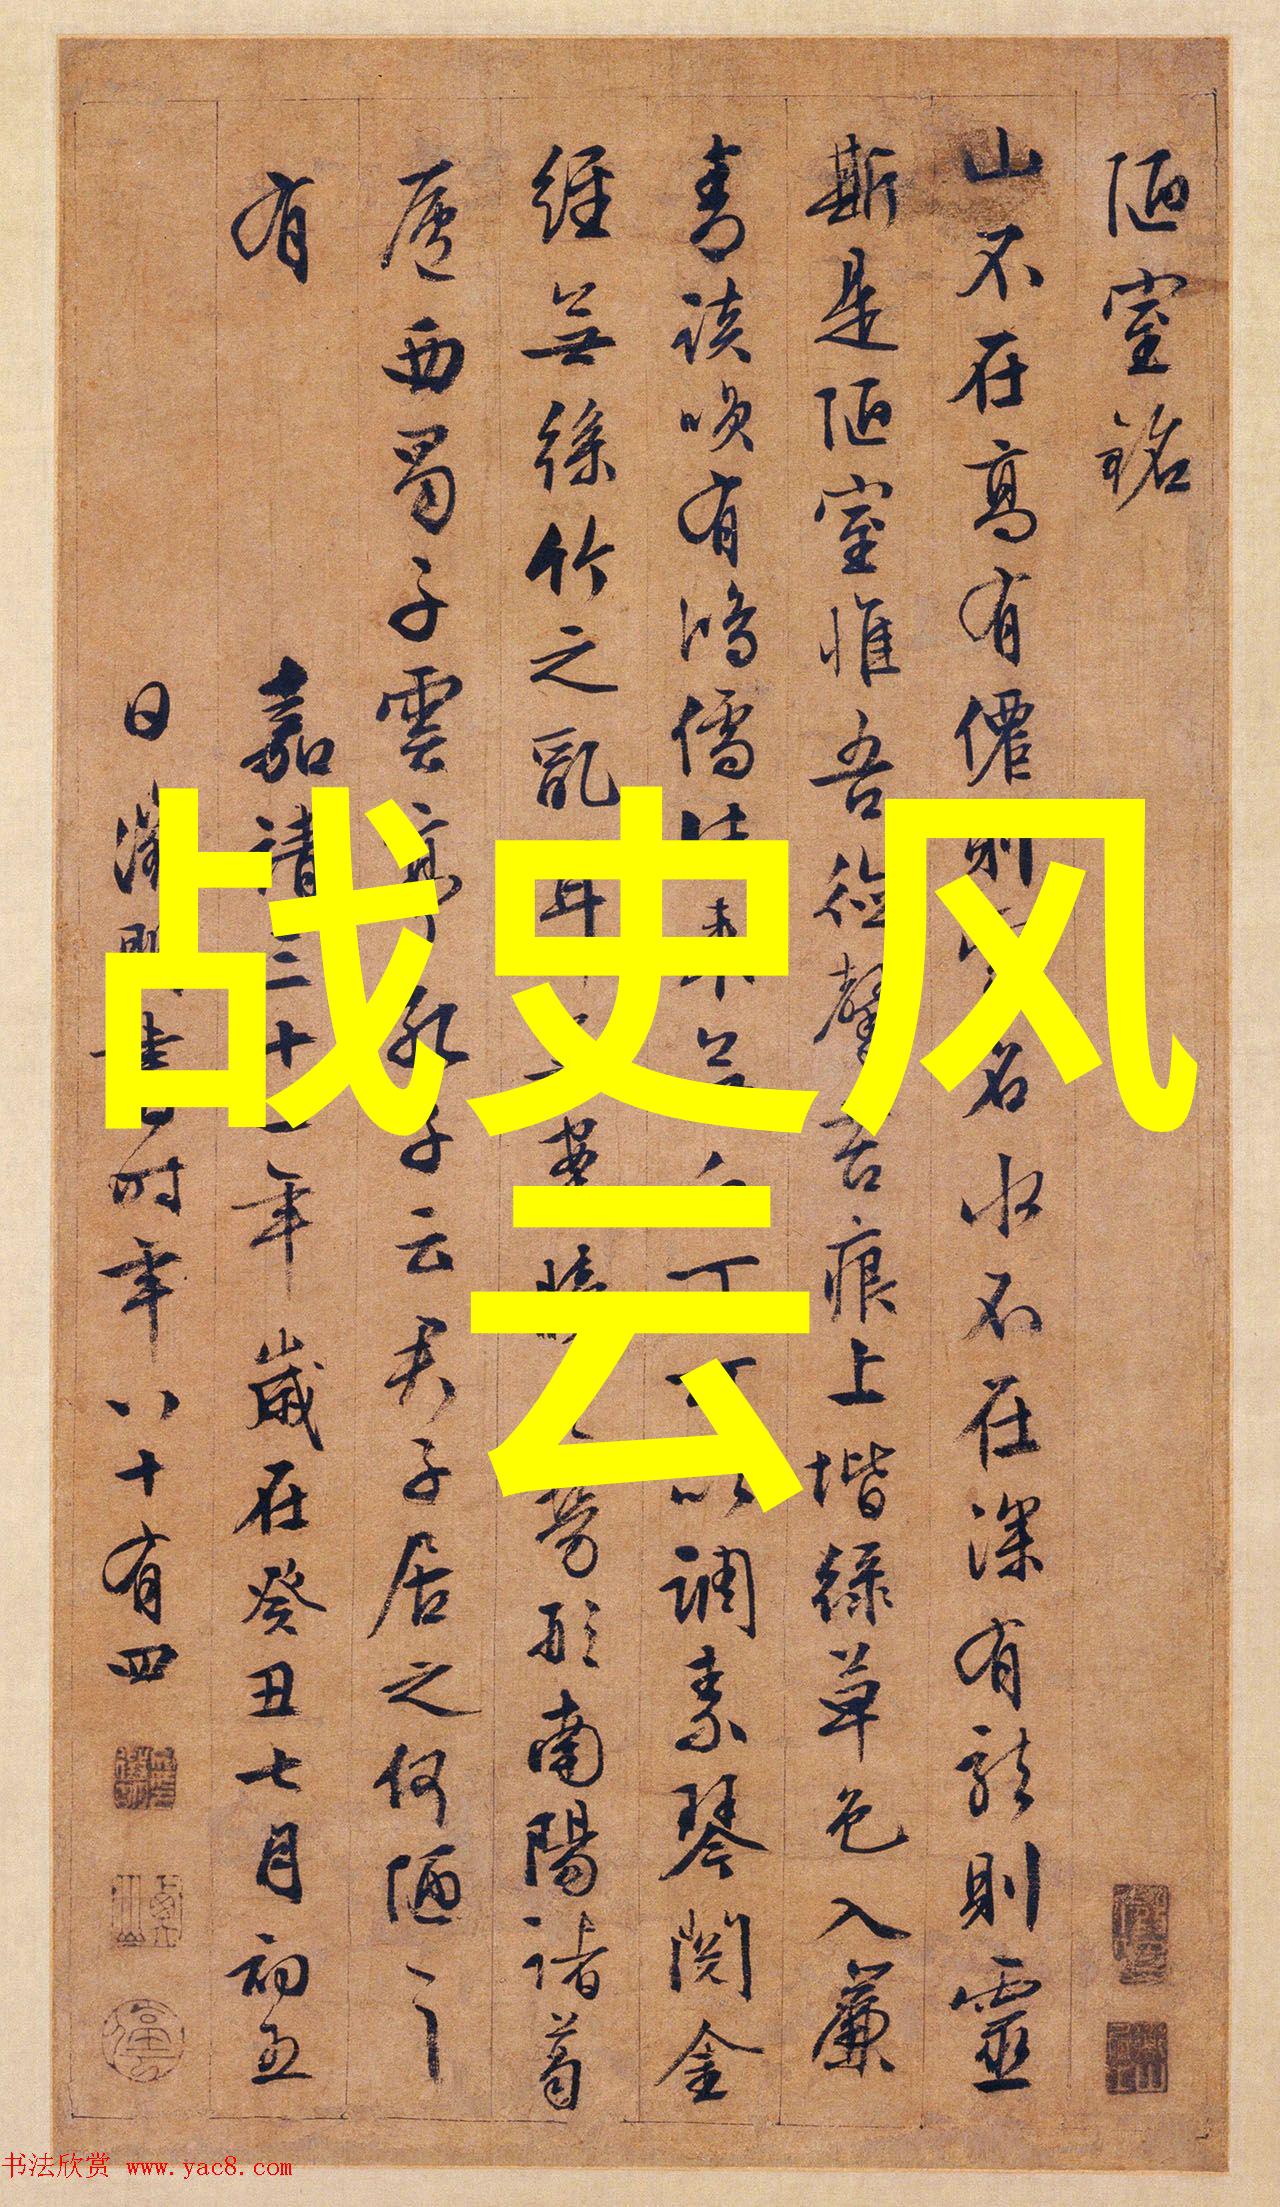 陋室銘
山不在高有僊則名水不在深有龍則靈
斯是陋室惟吾德馨苔痕上堦綠草色入簾
青談笑有鴻儒往來無白丁可以調素琴閱金
經無絲竹之亂耳無案牘之勞形南陽諸葛
廬西蜀子雲亭孔子云君子居之何陋之
有
嘉靖三十二年歲在癸丑七月初五
日徵明書時年八十有四
战史风
云
书法欣赏 www.yac8.com